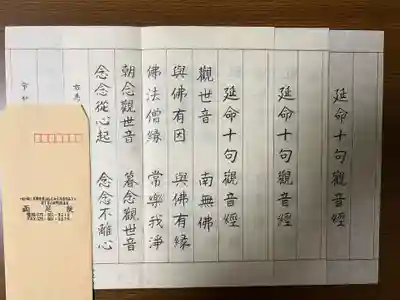 延命十句觀音經
延命十句觀音經
延命十句觀音經
觀世音 南無佛
與佛有因 與佛有縁
佛法僧縁 常樂我淨
朝念觀世音 暮念觀世音
念念從心起 念念不離心